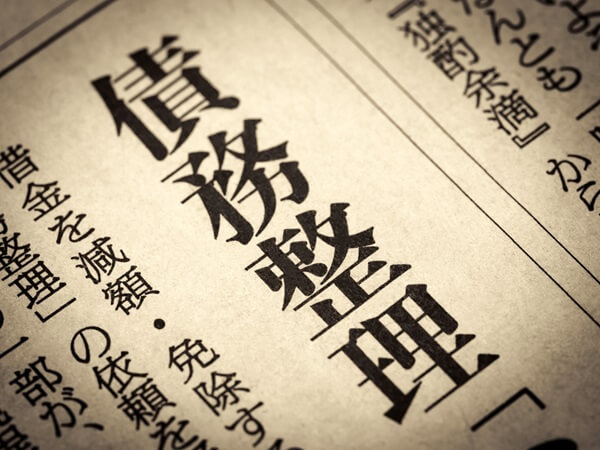 から
なんとも
『独酌余滴』
債務整理「
借金を減額・免除す
整理」の依頼を
部が、